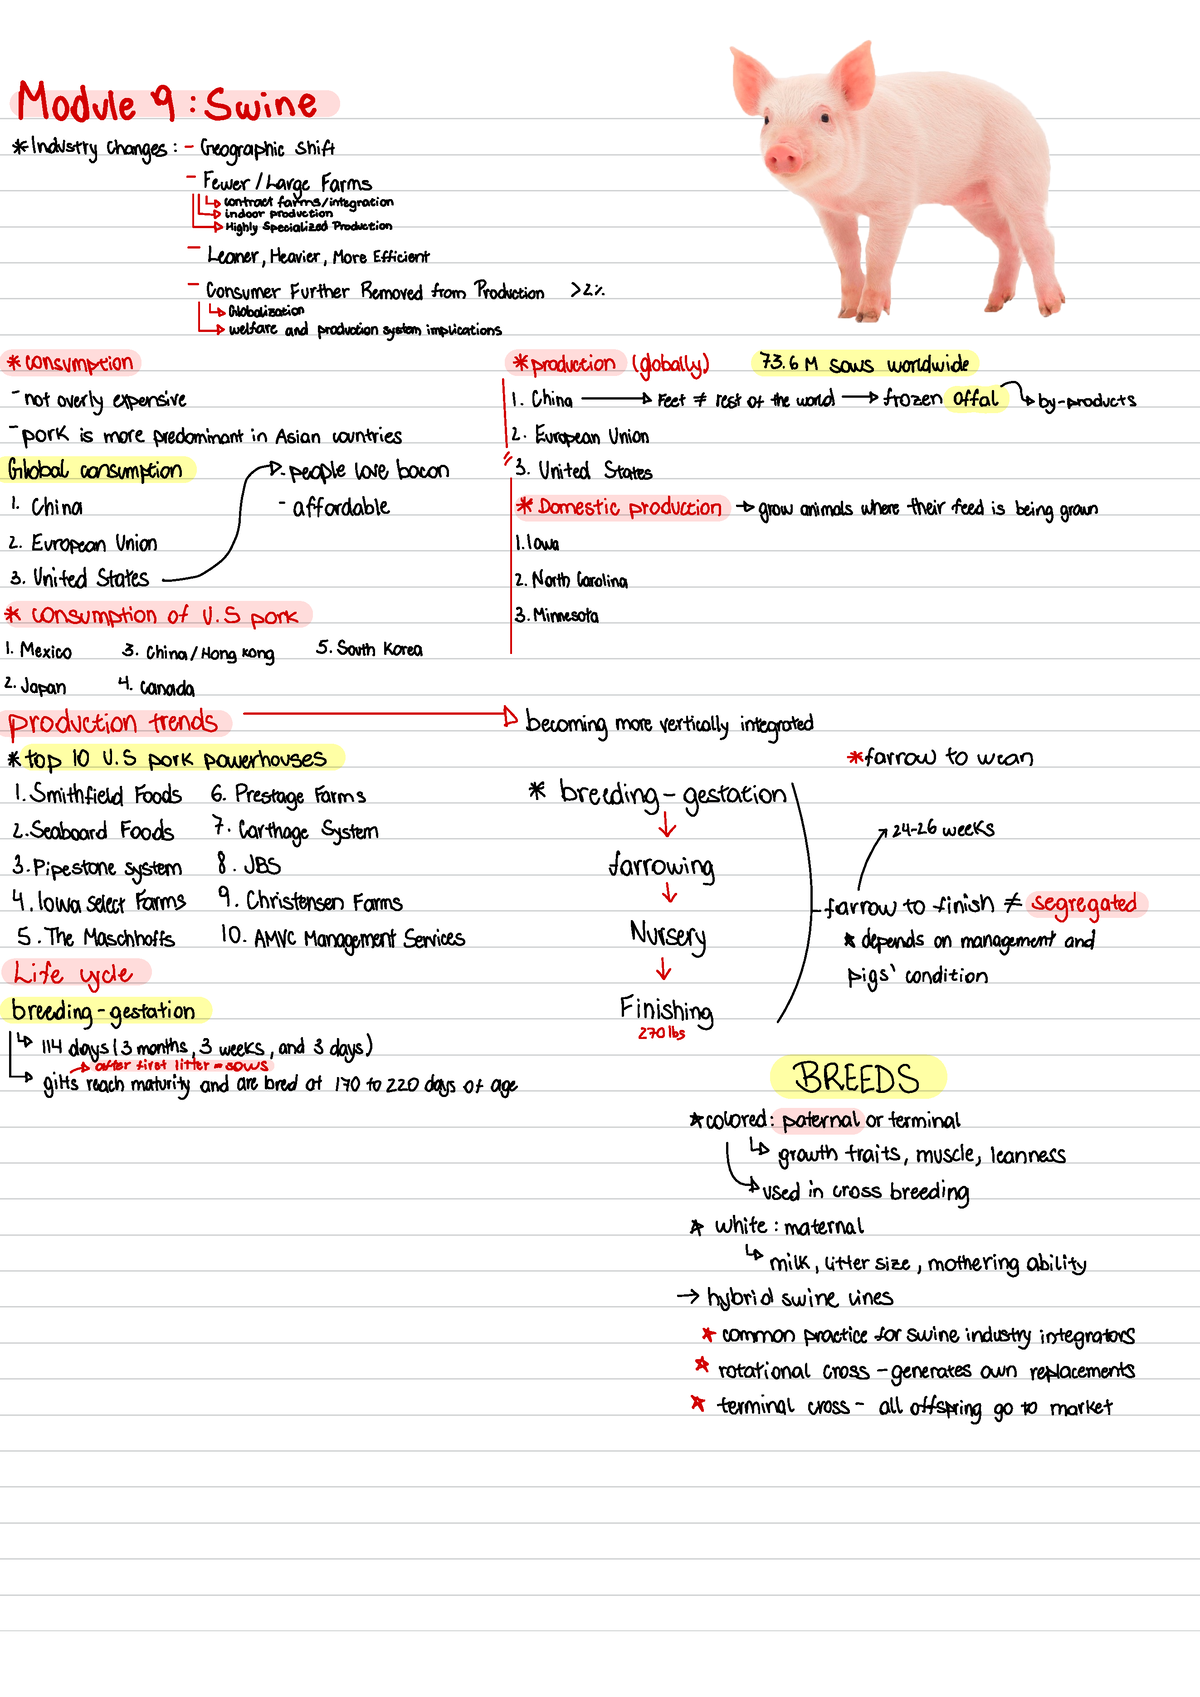 Module 9 : Swine
*Industry Changes : - Geographic Shift
- Fewer / Large Farms
↳ contract farms/integration
→ indoor production
→ Highly Specialized Production
- Leaner, Heavier, More Efficient
- Consumer Further Removed from Production >2%
↳ Globalization
→ welfare and production system implications
*consumption
- not overly expensive
- pork is more predominant in Asian countries
Global consumption
1. China
2. European Union
3. United States
→ - people love bacon
- affordable
* consumption of U.S pork
1. Mexico 3. China / Hong Kong 5. South Korea
2. Japan 4. Canada
*production (globally) 73.6 M sows worldwide
1. China → Feet ≠ rest of the world → frozen offal ↳ by-products
2. European Union
3. United States
*Domestic production → grow animals where their feed is being grown
1. Iowa
2. North Carolina
3. Minnesota
production trends → becoming more vertically integrated
*top 10 U.S pork powerhouses
1. Smithfield Foods 6. Prestage Farms
2. Seaboard Foods 7. Carthage System
3. Pipestone system 8. JBS
4. Iowa Select Farms 9. Christensen Farms
5. The Maschhoffs 10. AMVC Management Services
* breeding - gestation
↓
farrowing
↓
Nursery
↓
Finishing
270 lbs
*farrow to wean
↗ 24-26 weeks
farrow to finish ≠ segregated
* depends on management and
pigs' condition
Life cycle
breeding - gestation
↳ 114 days (3 months, 3 weeks, and 3 days)
→ after first litter = sows
→ gilts reach maturity and are bred at 170 to 220 days of age
BREEDS
*colored: paternal or terminal
↳ growth traits, muscle, leanness
→ used in cross breeding
* white : maternal
↳ milk, litter size, mothering ability
→ hybrid swine lines
* common practice for swine industry integrators
* rotational cross - generates own replacements
* terminal cross - all offspring go to market